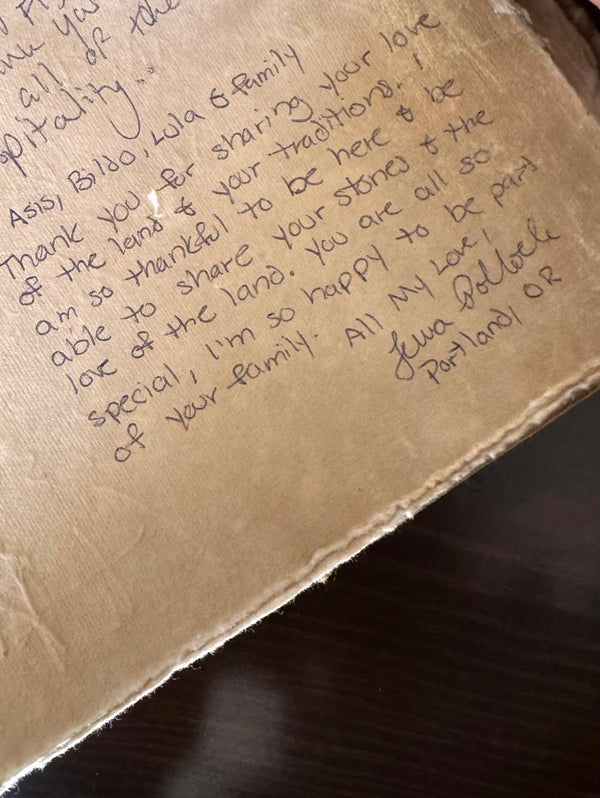 all of the
Asisi, Bildo, Lula & family
Thank you for sharing your love
of the land & your traditions. I
am so thankful to be here & be
able to share your stories & the
love of the land. You are all so
special, I'm so happy to be part
of your family. All My Love,
Portland, OR